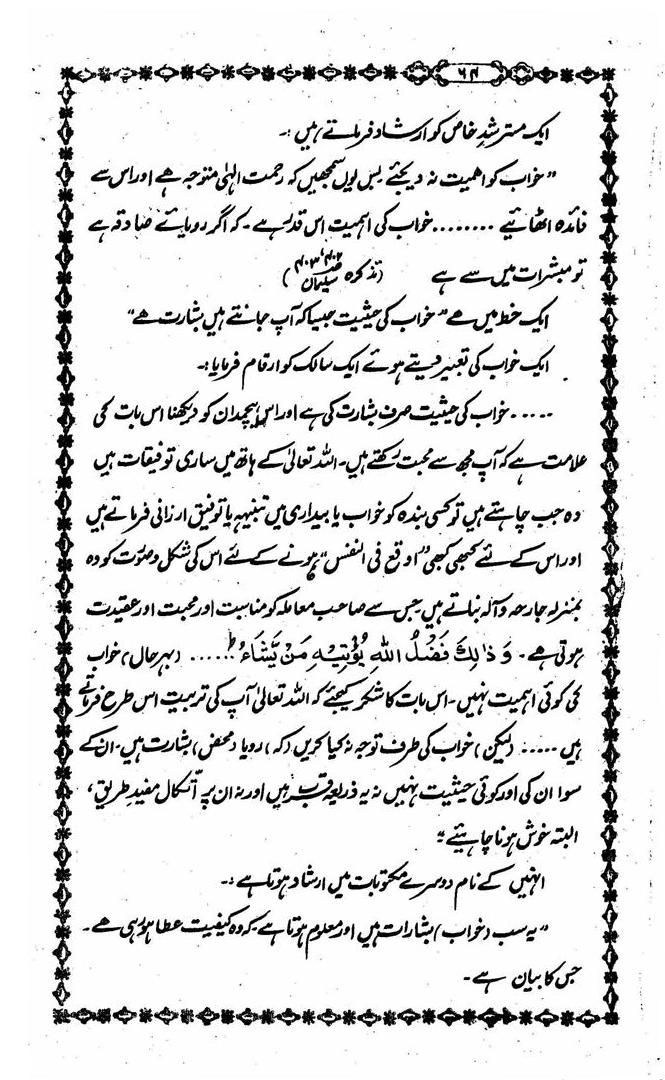 ۶۴
ایک مسترشدِ خاص کو ارشاد فرماتے ہیں :۔
” خواب کو اھمیت نہ دیجئے بس یوں سمجھیں کہ رحمت الٰہی متوجہ ہے اور اس سے
فائدہ اٹھائیے ........ خواب کی اہمیت اس قدر ہے۔ کہ اگر رویائے صادقہ ہے
تو مبشرات میں سے ہے (تذکرہ سلیمان
ایک خط میں ہے ” خواب کی حیثیت جیسا کہ آپ جانتے ہیں بشارت ہے “
ایک خواب کی تعبیر دیتے ہوئے ایک سالک کو ارقام فرمایا :۔
..... خواب کی حیثیت صرف بشارت کی ہے اور اس ہیچمدان کو دیکھنا اس بات کی
علامت ہے کہ آپ مجھ سے محبت رکھتے ہیں۔ اللہ تعالیٰ کے ہاتھ میں ساری توفیقات ہیں
وہ جب چاہتے ہیں تو کسی بندہ کو خواب یا بیداری میں تنبیہہ یا توفیق ارزانی فرماتے ہیں
اور اس کے لئے کبھی کبھی ” اوقع فی النفس “ ہونے کے لئے اس کی شکل و صورت کو وہ
بمنزلہ جارحہ و آلہ بناتے ہیں جس سے صاحب معاملہ کو مناسبت اور محبت اور عقیدت
ہوتی ہے۔ وَ ذٰلِكَ فَضْلُ اللهِ يُؤْتِيْهِ مَنْ يَّشَاءُ ط ..... (بہر حال) خواب
کی کوئی اہمیت نہیں۔ اس بات کا شکر کیجئے کہ اللہ تعالیٰ آپ کی تربیت اس طرح فرماتے
ہیں ..... (لیکن) خواب کی طرف توجہ نہ کیا کریں (کہ) رویا (محض) بشارت ہیں۔ ان کے
سوا ان کی اور کوئی حیثیت نہیں نہ یہ ذریعہ قرب ہیں اور نہ ان پر اتکال مفیدِ طریق،
البتہ خوش ہونا چاہیئے “
انہیں کے نام دوسرے مکتوبات میں ارشاد ہوتا ہے :۔
” یہ سب (خواب) بشارات ہیں اور معلوم ہوتا ہے کہ وہ کیفیت عطا ہو رہی ہے۔
جس کا بیان ہے۔